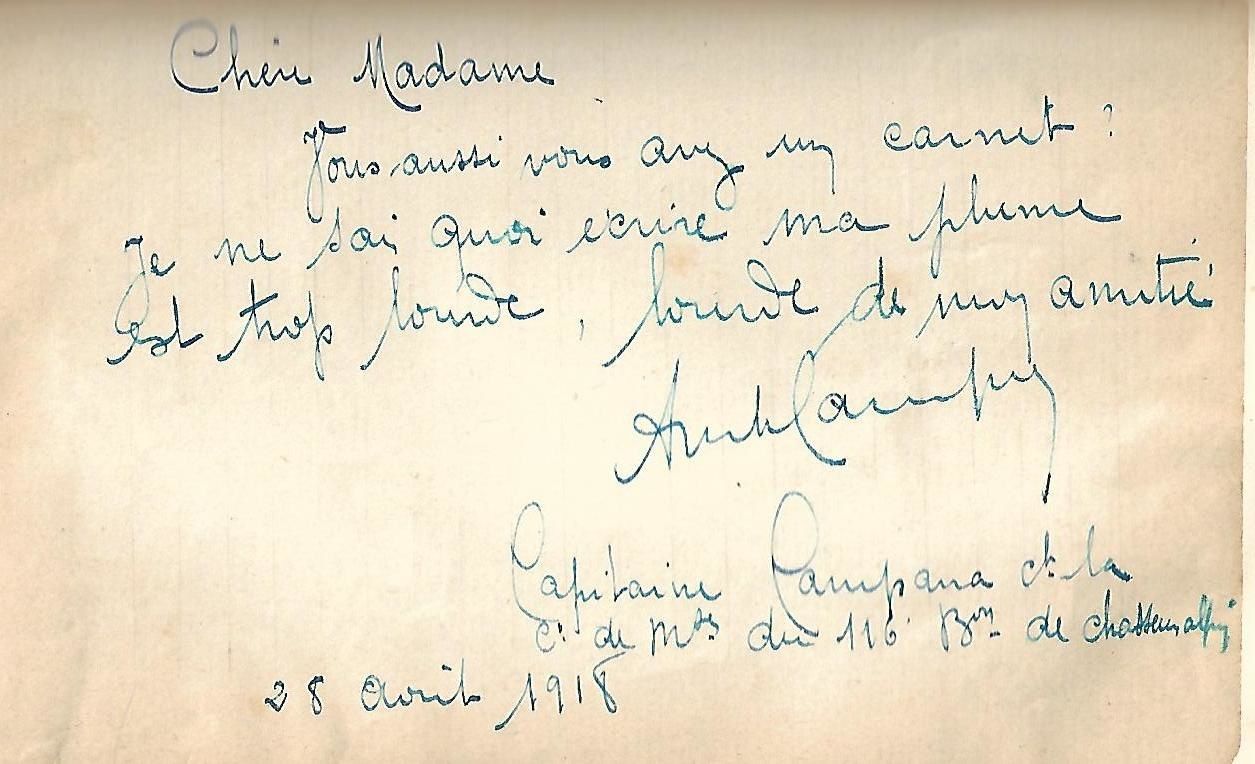 Chère Madame
Vous aussi vous avez un carnet ?
Je ne sais quoi écrire ma plume
est trop lourde, lourde de mon amitié
Campana
Capitaine Campana ct la
Cie de Mses du 116 Bon de chasseurs alpins
28 août 1918